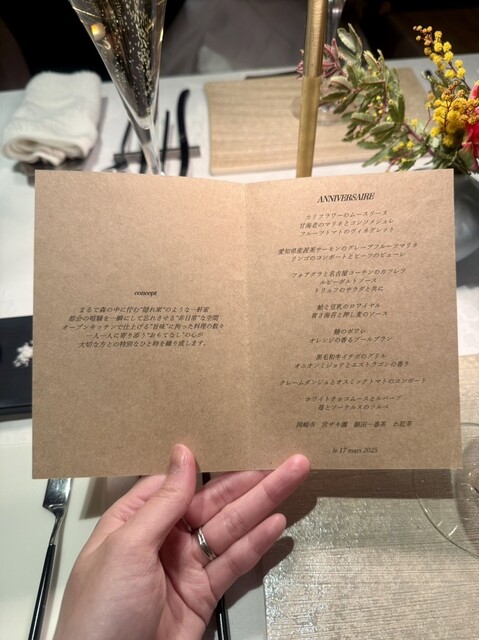 concept
まるで森の中に佇む"隠れ家"のような一軒家
都会の喧騒を一瞬にして忘れさせる"非日常"な空間
オープンキッチンで仕上げる"旨味"に拘った料理の数々
一人一人に寄り添う"おもてなし"の心が
大切な方との特別なひと時を織り成します。
ANNIVERSAIRE
カリフラワーのムースリーヌ
甘海老のマリネとコンソメジュレ
フルーツトマトのヴィネグレット
愛知県産渥美サーモンのグレープフルーツマリネ
リンゴのコンポートとビーツのピューレ
フォアグラと名古屋コーチンのガフレヴ
ルビーポルトソース
トリュフのサラダと共に
鮑と豆乳のロワイヤル
青さ海苔と押し麦のソース
鰆のポワレ
オレンジの香るブールブラン
黒毛和牛イチボのグリル
オニオンミジョテとエストラゴンの香り
クレームダンジュとオスミックトマトのコンポート
ホワイトチョコムースとルバーブ
苺とソーテルヌのソルベ
岡崎市 宮ザキ園 額田一番茶 わ紅茶
le 17 mars 2025